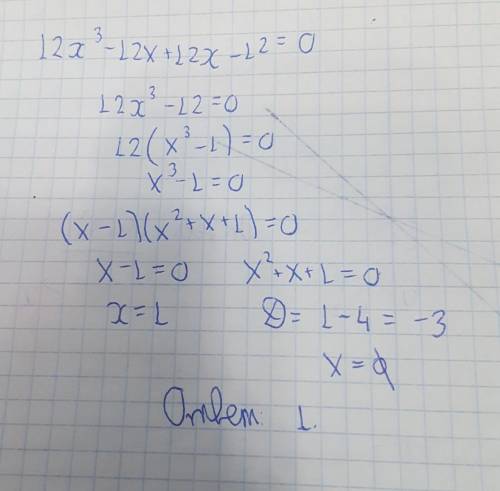 12x³-12x+12x-12=0
12x³-12=0
12(x³-1)=0
x³-1=0
(x-1)(x²+x+1)=0
x-1=0 x²+x+1=0
x=1 D=1-4=-3
x=∅
Ответ: 1.